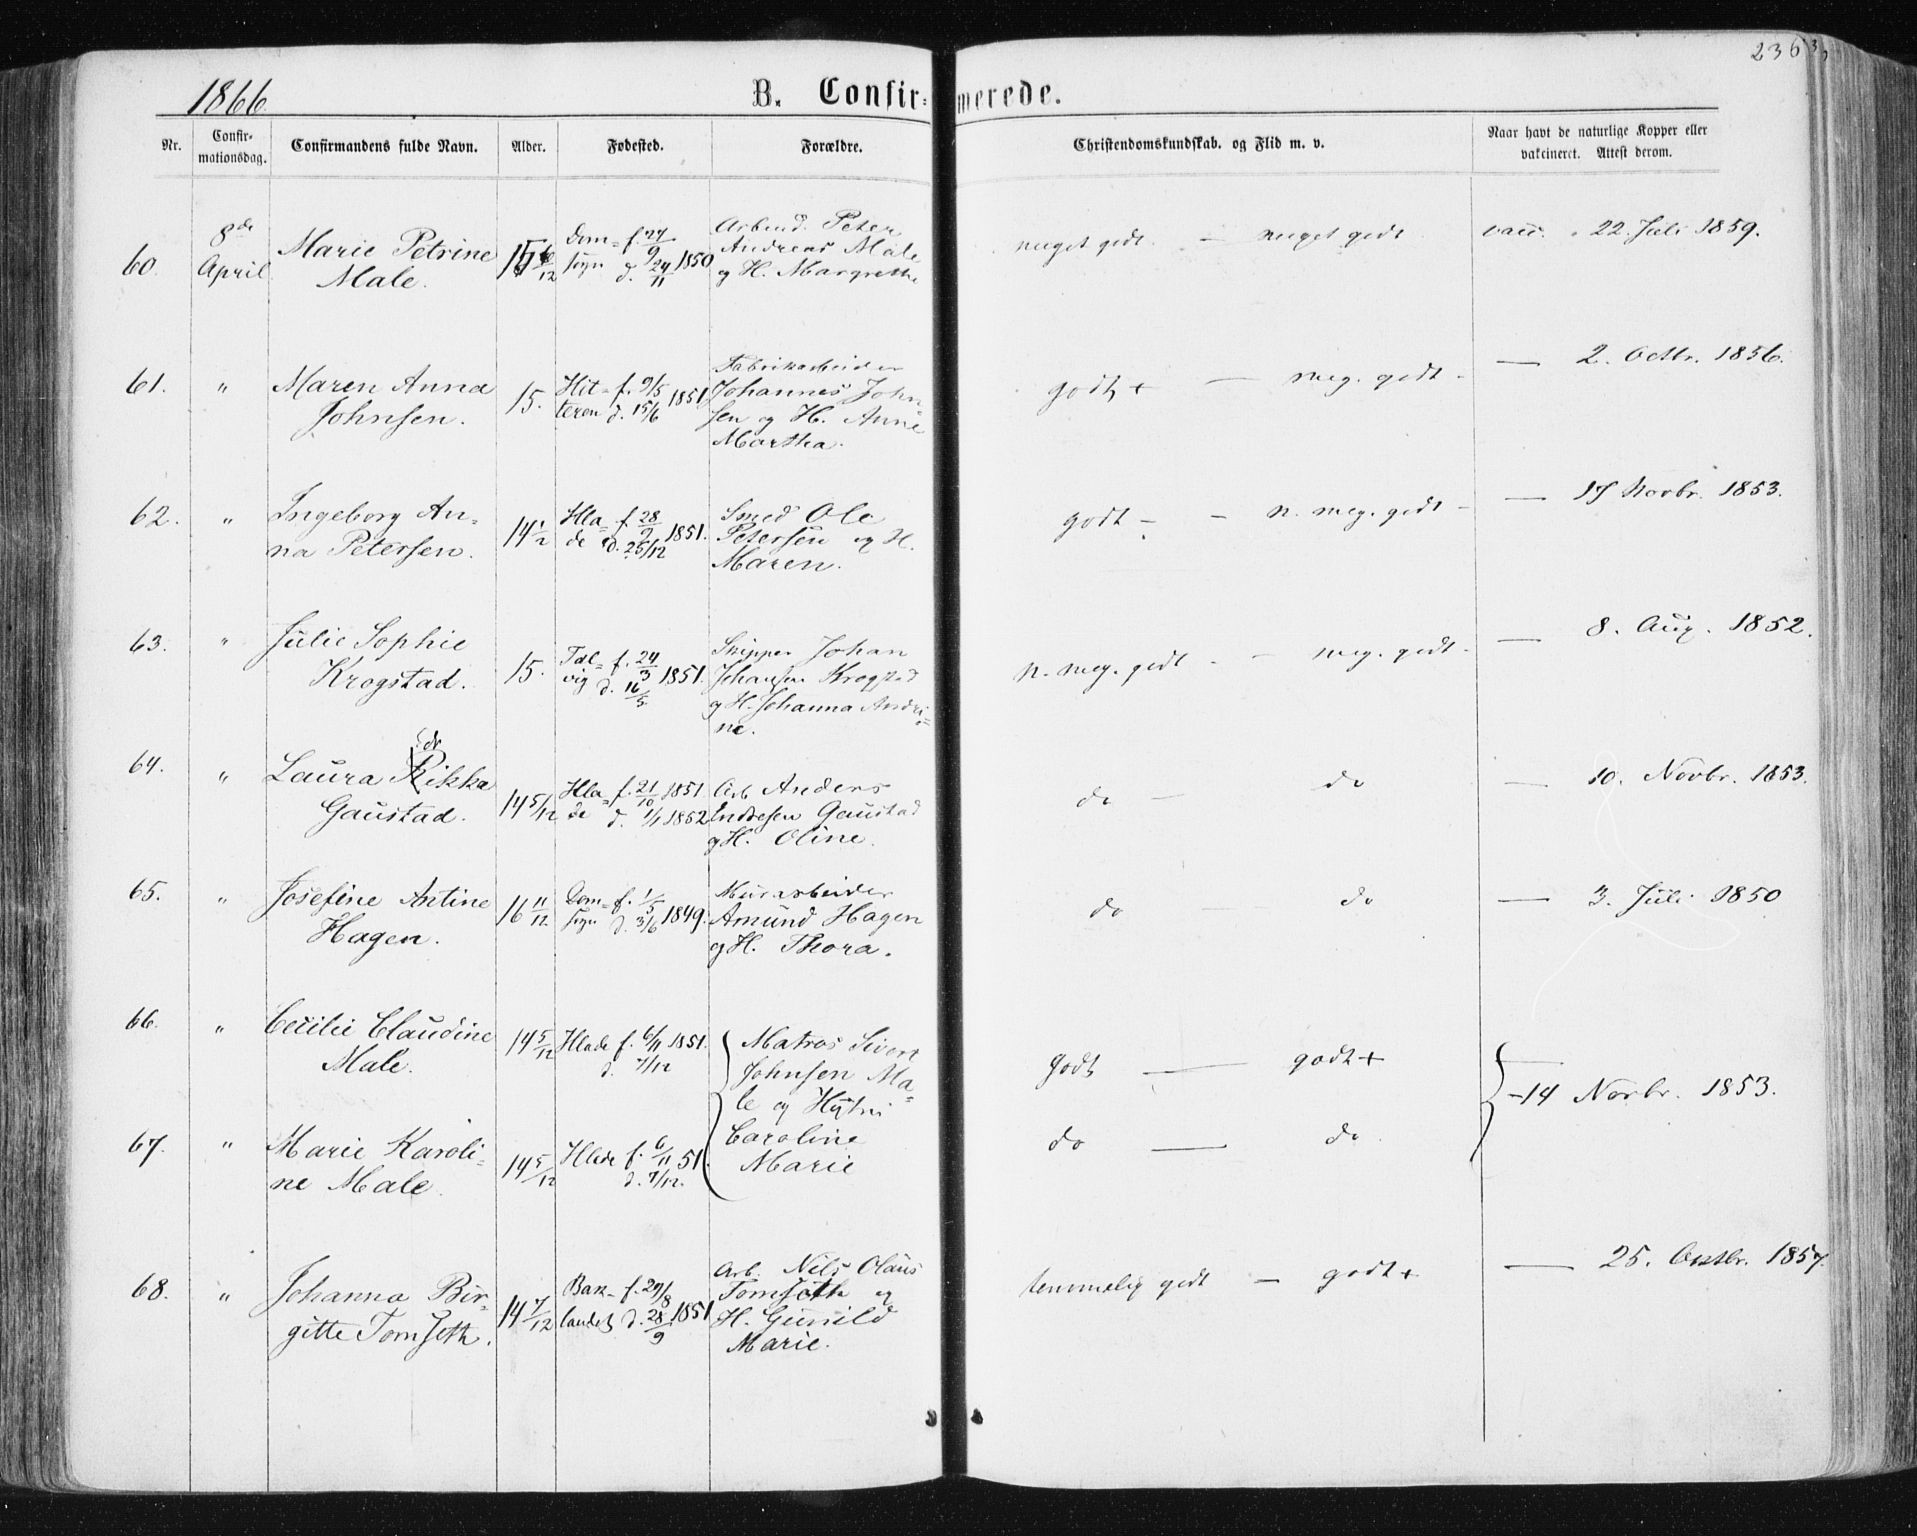 236
1866
B. Confir-merede.
Nr.
Confir-
mationsdag.
Confirmandens fulde Navn.
Alder.
Fødested.
Forældre.
Christendomskundskab. og Flid m. v.
Naar havt de naturlige Kopper eller
vakcineret. Attest derom.
60.
8de
April
Marie Petrine
Male.
Dom= f. 24/9
sogn d. 24/11 1850
Arbeid. Peter
Andreas Male
og H. Margrethe
meget godt. — meget godt
vacc. 22. Juli 1859.
61.
"
Maren Anna
Johnsen.
15.
Hit= f. 9/5
teren d. 15/6 1851
Fabrikarbeider
Johannes John=
sen og H. Anne
Martha.
godt + — meg. godt -
— 2. Octbr. 1856.
62.
"
Ingeborg An=
na Petersen.
14 1/2
Hla= f. 28/9
de d. 25/12 1851.
Smed Ole
Petersen og H.
Maren.
godt - - n. meg. godt -
— 17 Novbr. 1853.
63.
"
Julie Sophie
Krogstad.
15.
Tal= f. 24/3
vig d. 16/5 1851.
Skipper Johan
Johansen Krogstad
og H. Johanna Andri=
ne.
n. meg. godt - - meg. godt -
— 8. Aug. 1852.
64.
"
Laura Rikka
Gaustad.
14 5/12
Hla= f. 21/10 1851
de d. 1/1 1852
Arb Anders
Endresen Gaustad
og H. Oline.
do — do
— 10. Novbr. 1853.
65.
"
Josefine Antine
Hagen.
16 11/12
Dom= f. 1/5
sogn d. 3/6 1849.
Murarbeider
Amund Hagen
og H. Thora.
do — do
— 3. Juli 1850
66.
"
Cecilie Claudine
Male.
14 5/12
Hlade f. 6/11 1851.
d. 7/12
Matros Sivert
Johnsen Ma=
le og Hustru
Caroline
Marie
godt — godt +
—
-14 Novbr. 1853.
67.
"
Marie Karoli=
ne Male.
14 5/12
Hlade f. 6/11 51.
d. 7/12.
do — do
68.
"
Johanna Bir=
gitte Tomseth.
14 7/12
Bak= f. 29/8
landet d. 28/9 1851
Arb. Nils Olaus
Tomseth og
H. Gunild
Marie.
temmelig godt — godt +
— 25. Octbr. 1857.